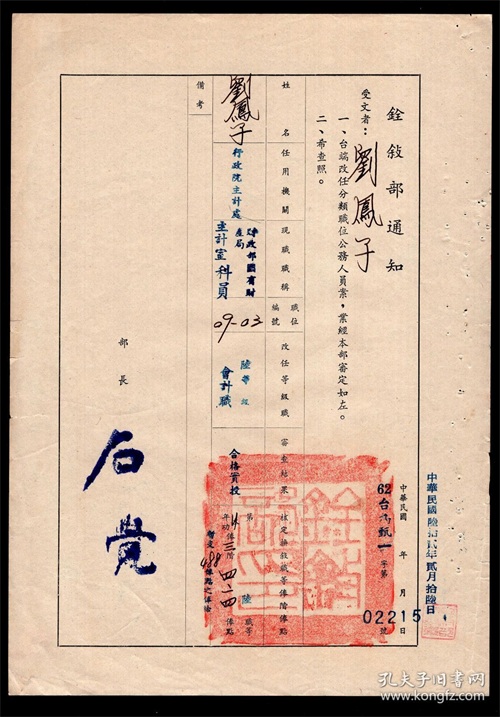 銓敍部通知
受文者：劉鳳子
一、台端改任分類職位公務人員案，業經本部審定如左。
二、希查照。
中華民國陸拾貳年貳月拾陸日
中華民國 年 月 日
62台 甄一 字第 02215 號
姓名
任用機關
現職職稱
職位編號
改任等級職
審查結果
核定換敍職等俸階俸點
劉鳳子
行政院主計處
財政部國有財產局
主計室科員
09-03
陸等
會計職
合格實授
第 陸 職等
年功俸 三 階 四一四 俸點
備考
部長
石覺
孔夫子旧书网
www.kongfz.com